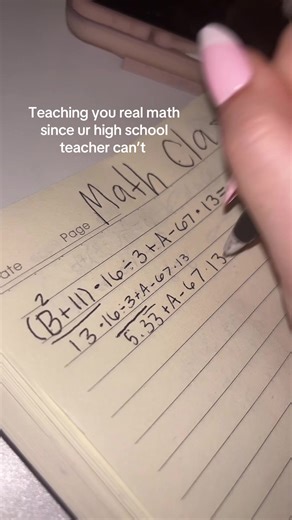 Teaching you real math
since ur high school
teacher can't
Math Cla
ate
Page
2
(B+11)•16÷3+A-67•13=
13•16÷3+A-67•13
5.33+A-67.13